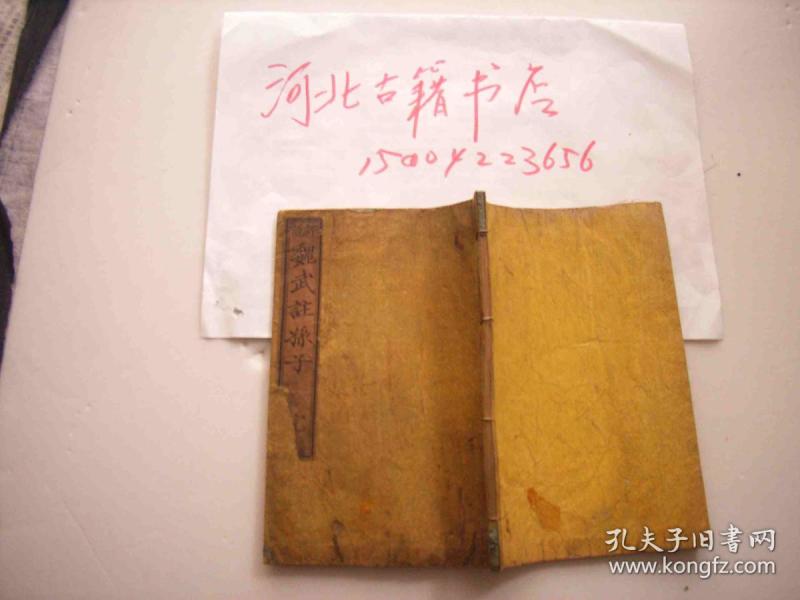 河北古籍书店
15004223656
魏武註孫子
孔夫子旧書网
www.kongfz.com